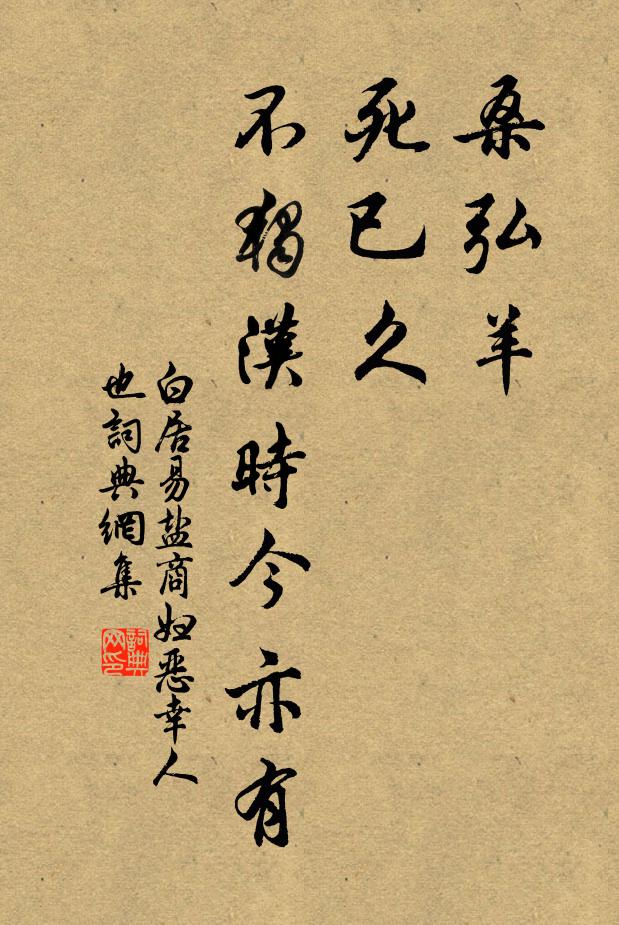 桑弘羊
死已久
不獨漢時今亦有
白居易盐商妇惡幸人
也詞典網集
詞典
网印